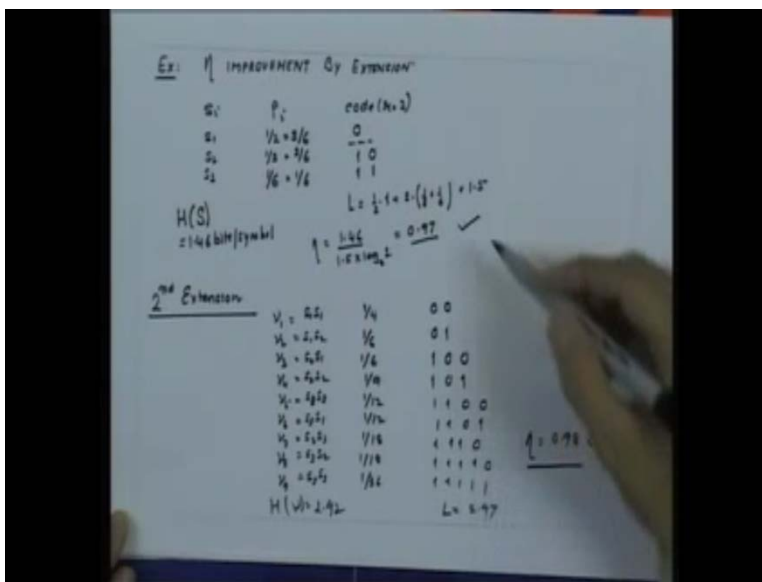 Ex: η IMPROVEMENT By EXTENSION
Si Pi code (r=2)
S1 1/2 = 3/6 0
S2 1/3 = 2/6 10
S3 1/6 = 1/6 11
L = 1/2·1 + 2·(1/3+1/6) = 1.5
H(S)
= 1.46 bits/symbol
η = 1.46 / 1.5 x log₂2 = 0.97 ✓
2nd Extension
V1 = S1S1 1/4 00
V2 = S1S2 1/6 01
V3 = S2S1 1/6 100
V4 = S2S2 1/9 101
1/12 1100
1/12 1101
1/18 1110
1/18 11110
V9 = S3S3 1/36 11111
H(V) = 2.92 L = 2.97
η = 0.98